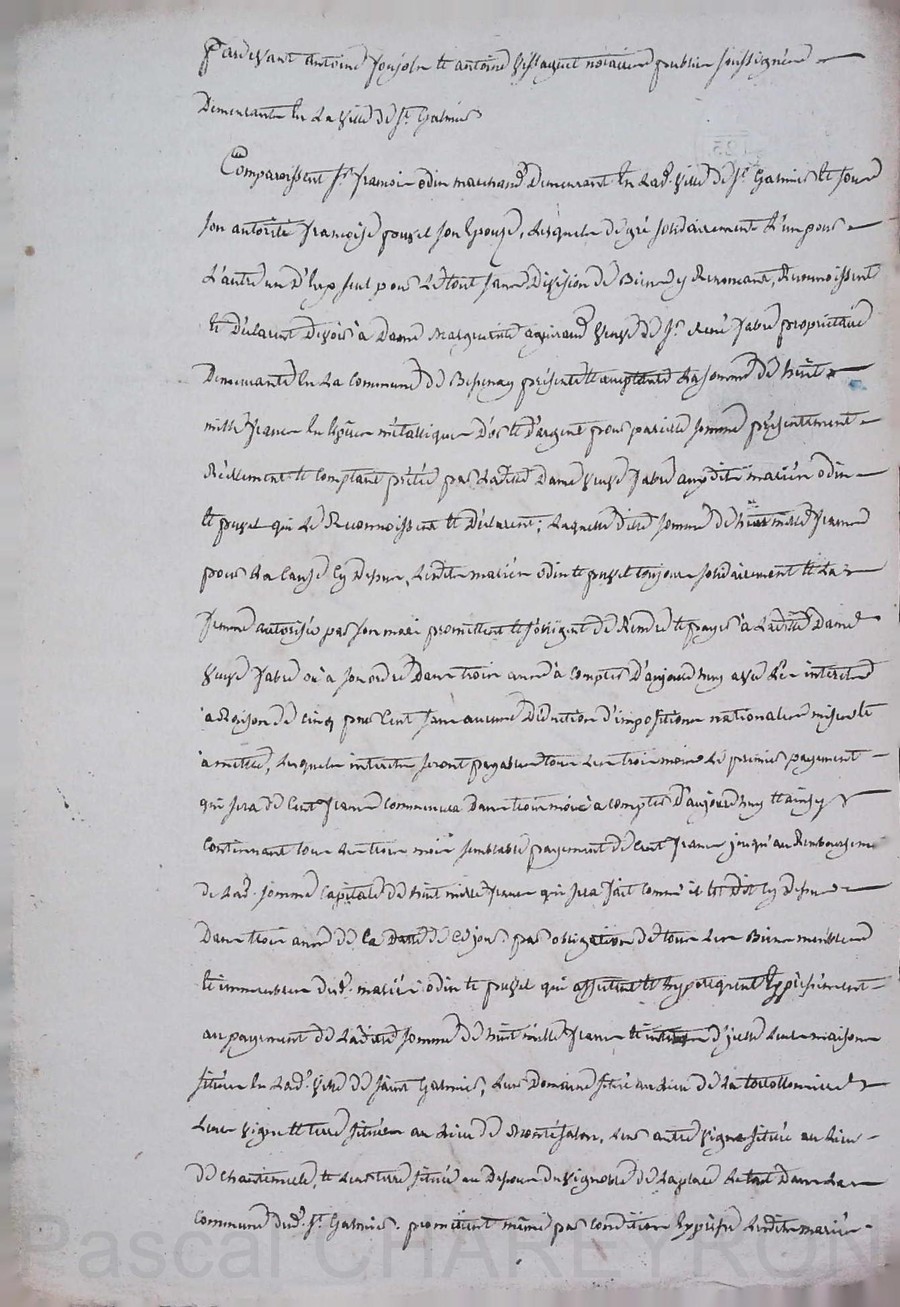 Pardevant antoine Joujoln et antoine vissaguet notaires publics soussignés
Demeurants En La ville de St. Galmier
Comparoissent Sr. francois odin marchand Demeurant En Lad. ville de St. Galmier Et sous
son autorité françoise pouzet son Epouse, Lesquels de gré solidairement L'un pour
L'autre un d'Eux seul pour Le tout sans Division de Biens y Renoncant, Reconnoissent
Et Déclarent Devoir à Dame Marguerite veuve de Sr. René fabre propriétaire
Demeurante En La Commune de Bessenay présente et acceptante La somme de huit
mille francs En Espèces métalliques D'or et d'argent pour pareille somme présentement
Réellement et Comptant prêtée par Ladite Dame veuve fabre auxdits mariés odin
et pouzet qui Le Reconnoissent et Déclarent; Laquelle dite somme de huit mille francs
pour La Cause Cy Dessus, Lesdits mariés odin et pouzet toujours solidairement et La
femme autorisée par son mari promettent et s'obligent de Rendre et payer à Ladite Dame
veuve fabre ou à son ordre Dans trois ans à Compter D'aujourd'huy avec Les intérêts
à Raison de cinq pour Cent sans aucune Déduction d'impositions nationales mises et
à mettre, Lesquels intérêts seront payables tous Les trois mois Le premier payement
qui sera de Cent francs Commencera Dans trois mois à compter D'aujourd'huy Et ainsy
Continuant tous Les trois mois semblable payement de Cent francs jusqu'au Remboursement
de Lad. somme Capitale de huit mille francs qui sera fait Comme il Est Dit Cy Dessus
Dans trois ans de La Date de Ce jour. par obligation de tous Leurs Biens meubles
et immeubles desd. mariés odin et pouzet qui affectent et hypotequent Expressément
au payement de Ladite somme de huit mille francs et d'icelle Leurs maisons
situées En Lad. ville de Saint Galmier, Leur Domaine situé au Lieu de La
Leurs vigne et terre situées au Lieu de Montsalon, Leur autre vigne située au Lieu
de Et Leur terre située au Dessous du vignoble de Laplace Le tout Dans La
Commune dud. St. Galmier. promettent même par condition Expresse Lesdits mariés
Pascal CHAREYRON